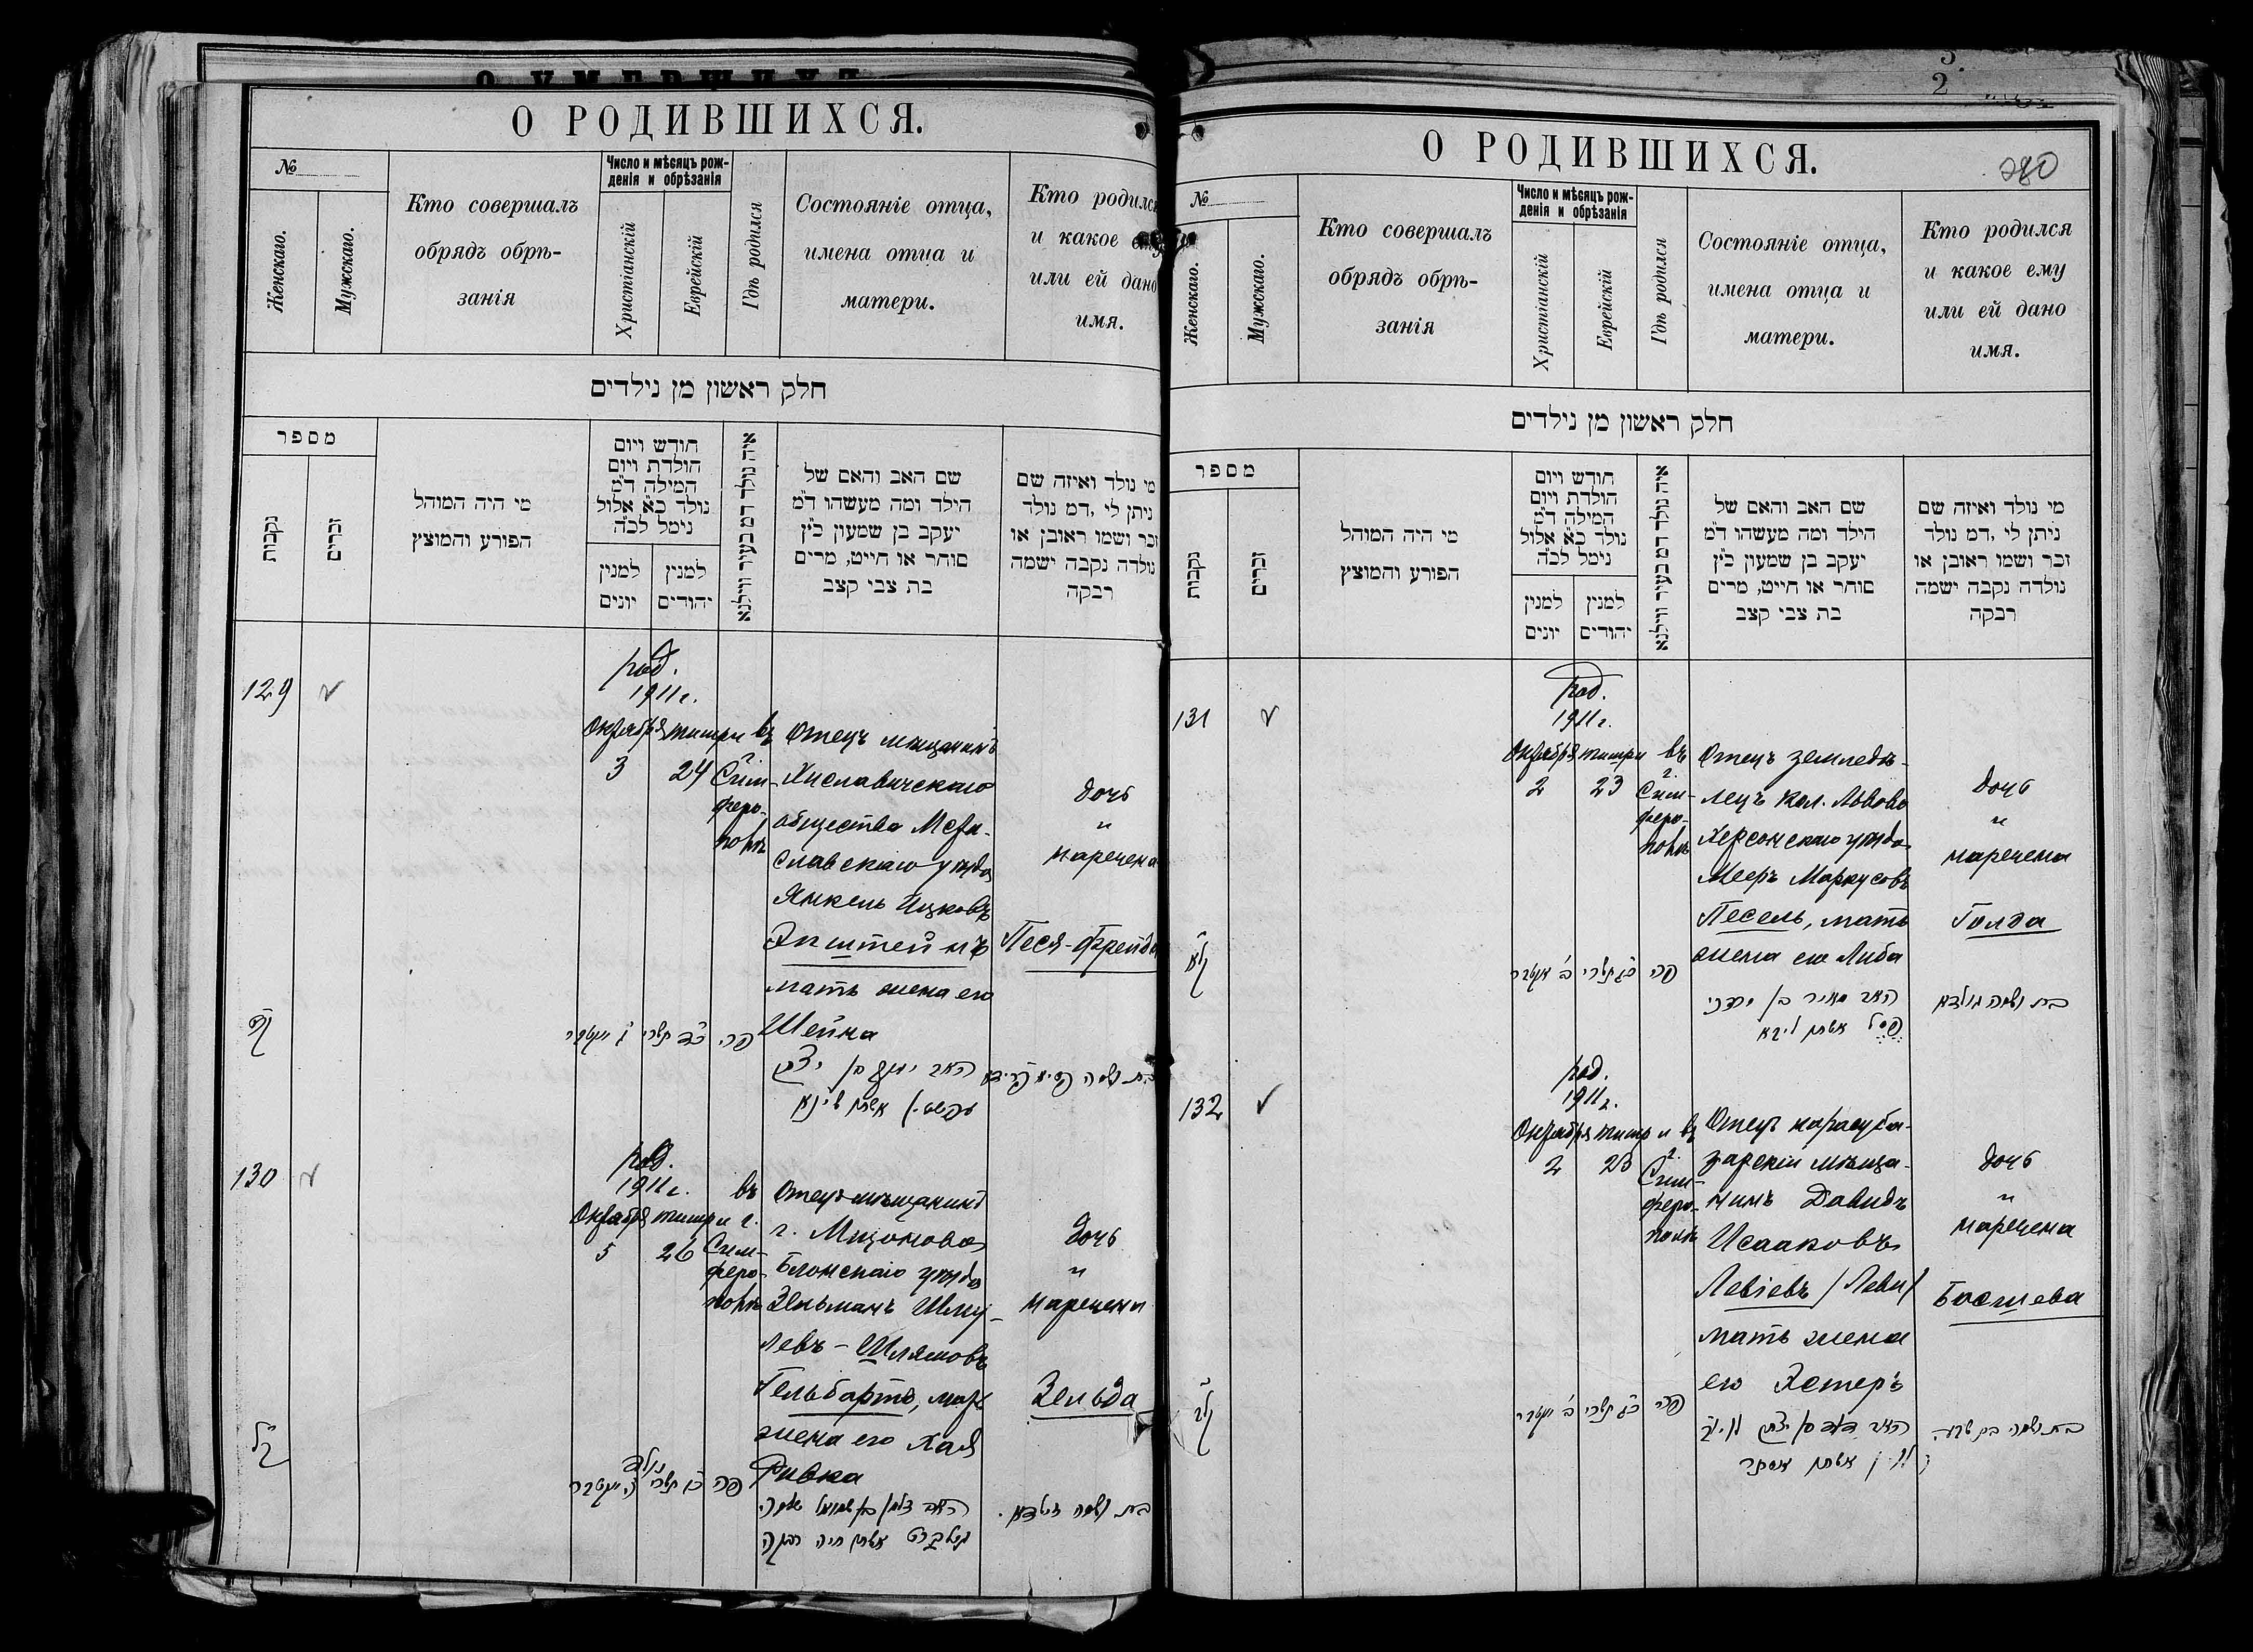 О РОДИВШИХСЯ.
№
Женскаго.
Мужскаго.
Кто совершалъ
обрядъ обрѣ-
занія
Число и мѣсяцъ рож-
денія и обрѣзанія
Христіанскій
Еврейскій
Гдѣ родился
Состояніе отца,
имена отца и
матери.
Кто родился
и какое
или ей дано
имя.
חלק ראשון מן נילדים
מספר
נקבות
זכרים
מי היה המוהל
הפורע והמוצץ
חודש ויום
הולדת ויום
המילה ד״מ
נולד כ״א אלול
נימל לכ״ה
למנין
יונים
למנין
יהודים
איה נולד דמ בעיר ווילנא
שם האב והאם של
הילד ומה מעשהו ד״מ
יעקב בן שמעון כ״ץ
סוחר או חייט, מרים
בת צבי קצב
מי נולד ואיזה שם
ניתן לי ,דמ נולד
זכר ושמו ראובן או
נולדה נקבה ישמה
רבקה
129
род.
1911 г.
Октября тишри въ
3 24 г. Сим-
феро-
полѣ
Отецъ мѣщанинъ
Хиславичскаго
общества Мсти-
славскаго уѣзда
Янкель Ицковъ
Эпштейнъ
мать жена его
Шейна
дочь
"
наречена
Песя-Фрейда
קכט
פה
האב יעקב בן יצחק
עפשטיין אשתו שיינא
130
род.
1911 г.
Октября тишри въ г.
5 26 Сим-
феро-
полѣ
Отецъ мѣщанинъ
г. Мщонова
Блонскаго уѣзда
Зельманъ Шму-
левъ-Шлямовъ
Гельбартъ, мать
жена его Хая
Ривка
дочь
"
наречена
Зельда
קל
פה
האב זלמן בן שמואל שלמה
געלברט אשתו חיה רבקה
בת ושמה זעלדא.
О РОДИВШИХСЯ.
280
№
Женскаго.
Мужскаго.
Кто совершалъ
обрядъ обрѣ-
занія
Число и мѣсяцъ рож-
денія и обрѣзанія
Христіанскій
Еврейскій
Гдѣ родился
Состояніе отца,
имена отца и
матери.
Кто родился
и какое ему
или ей дано
имя.
חלק ראשון מן נילדים
מספר
נקבות
זכרים
מי היה המוהל
הפורע והמוצץ
חודש ויום
הולדת ויום
המילה ד״מ
נולד כ״א אלול
נימל לכ״ה
למנין
יונים
למנין
יהודים
איה נולד דמ בעיר ווילנא
שם האב והאם של
הילד ומה מעשהו ד״מ
יעקב בן שמעון כ״ץ
סוחר או חייט, מרים
בת צבי קצב
מי נולד ואיזה שם
ניתן לי ,דמ נולד
זכר ושמו ראובן או
נולדה נקבה ישמה
רבקה
131
род.
1911 г.
Октября тишри въ
2 23 г. Сим-
феро-
полѣ
Отецъ земледѣ-
лецъ кол. Львово
Херсонскаго уѣзда
Мееръ Маркусовъ
Песель, мать
жена его Либа
дочь
"
наречена
Голда
קלא
פה
האב מאיר בן מרדכי
פסל אשתו ליבא
בת ושמה גולדא
132
род.
1911 г.
Октября тишри въ
2 23 г. Сим-
феро-
полѣ
Отецъ карасуба-
зарскій мѣща-
нинъ Давидъ
Исааковъ
Левіевъ /Леви/
мать жена
его Эстеръ
дочь
"
наречена
Басшева
קלב
פה
האב דוד בן יצחק
לוי אשתו אסתר
בת ושמה בת שבע